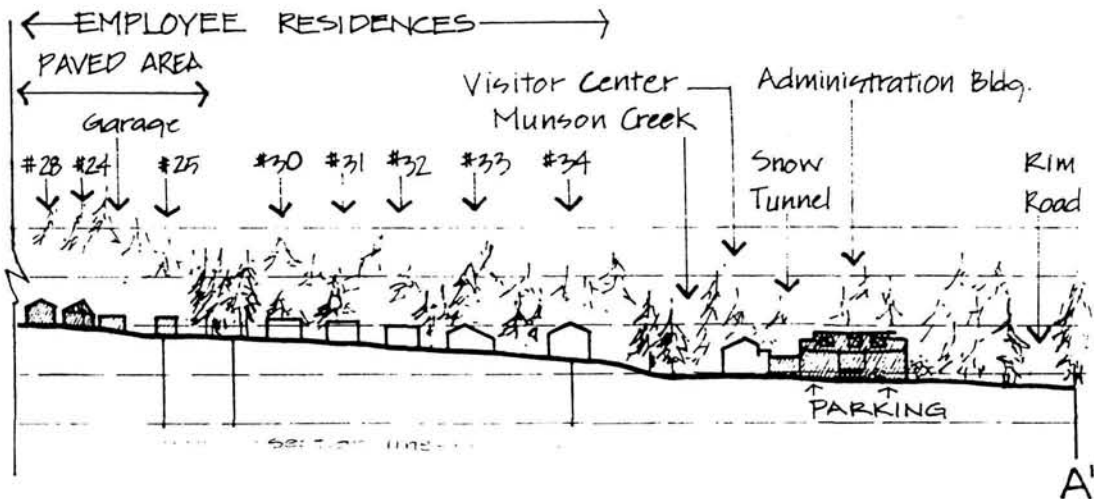 EMPLOYEE RESIDENCES
PAVED AREA
Garage
#28 #24 #25 #30 #31 #32 #33 #34
Visitor Center
Munson Creek
Administration Bldg.
Snow
Tunnel
Rim
Road
PARKING
A'